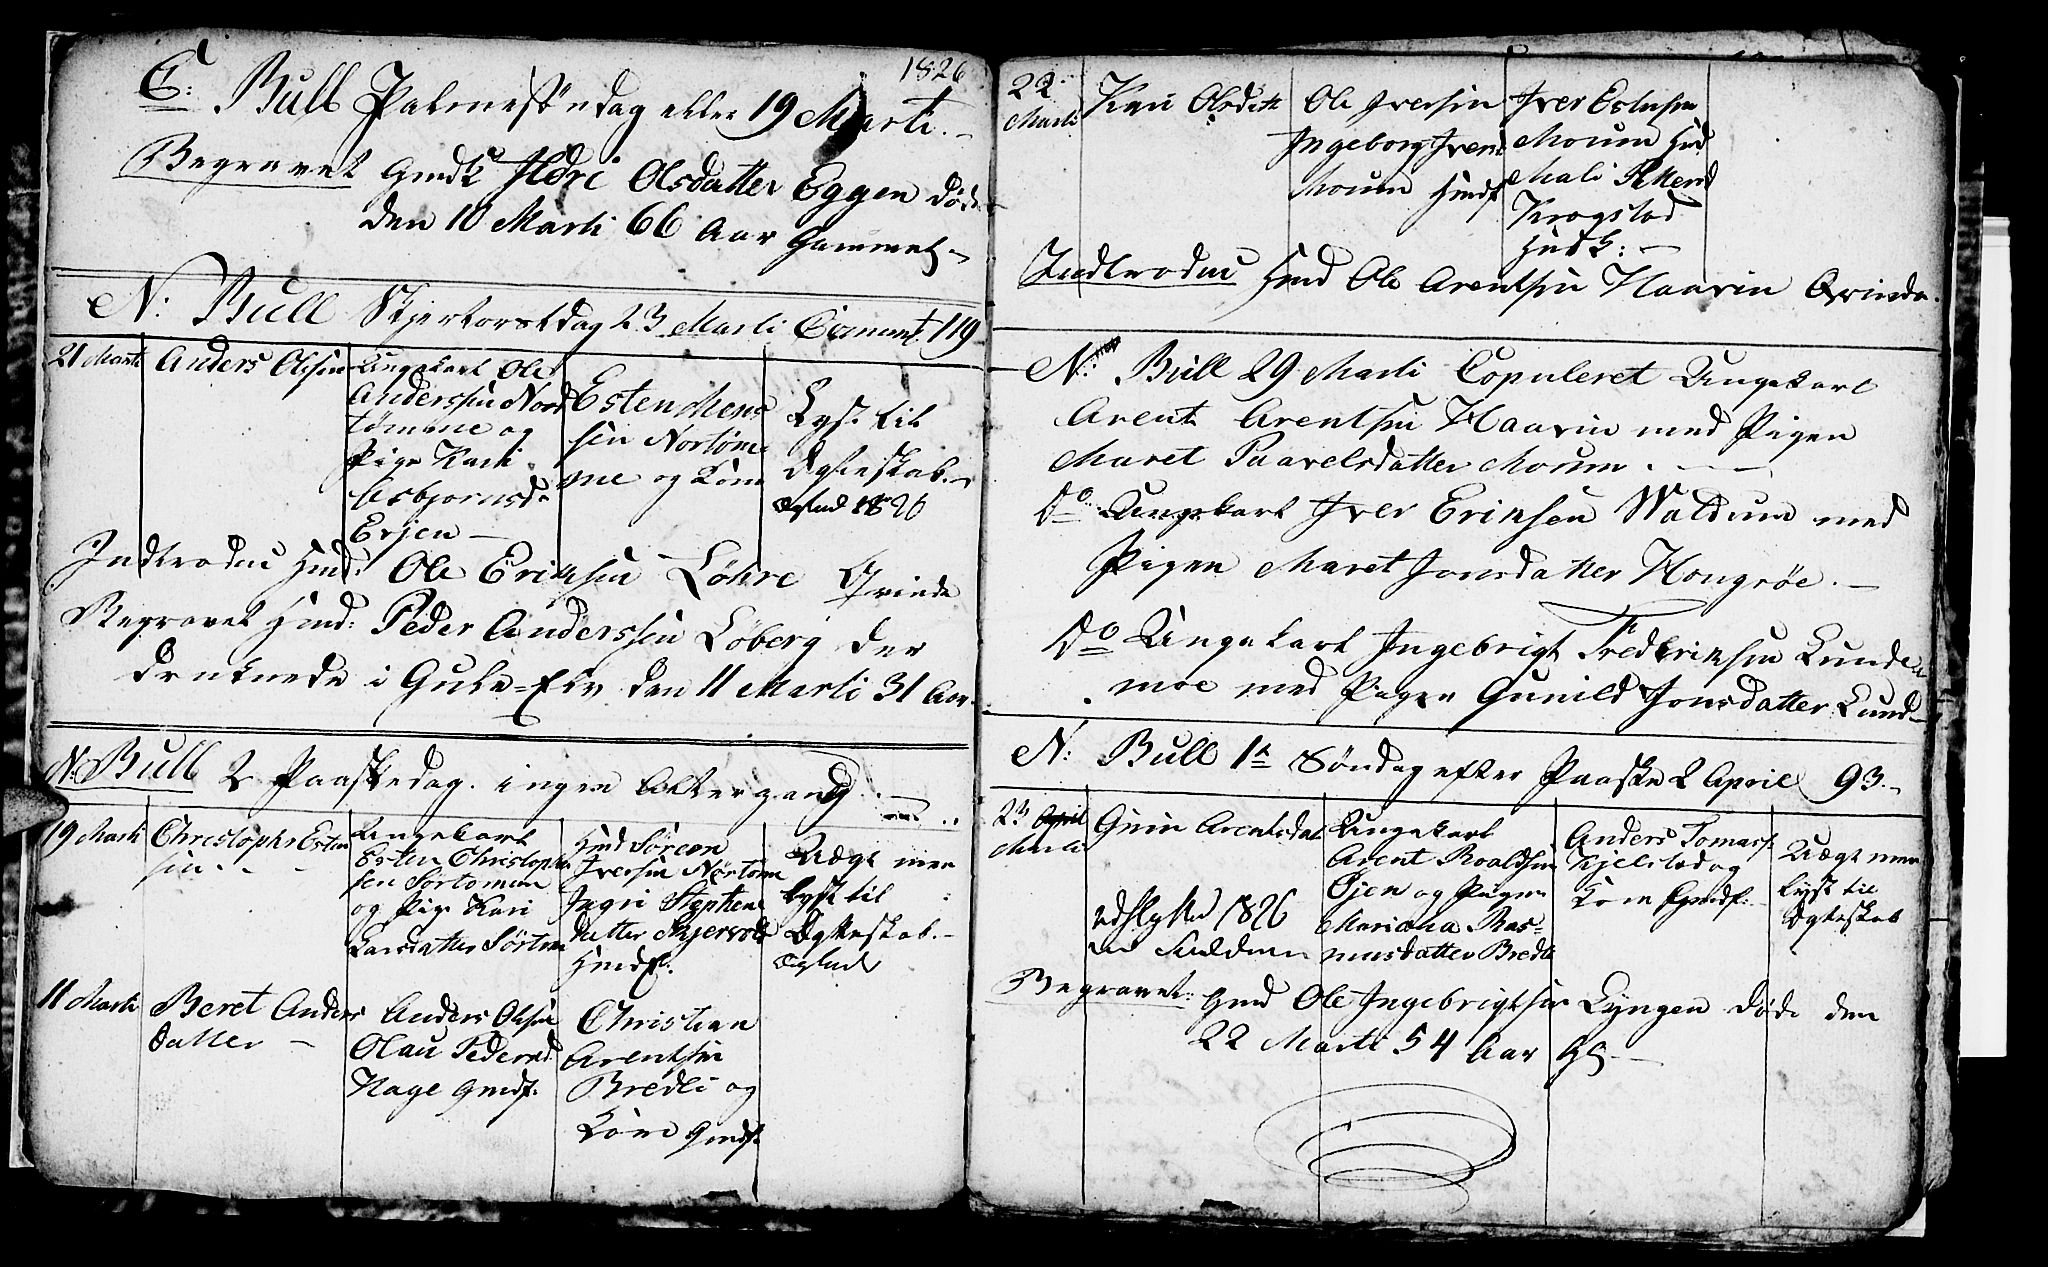 1826
C: Bull Palmesöndag eller 19 Marti.
Begravet Gmdk Ildri Olsdatter Eggen døde
den 10 Marti 66 Aar Gammel
N: Bull Skjertorsdag 23 Marti Comment. 119
21 Marti
Anders Olsen
Ungekarl Ole
Anderssen Nord
tømme og
Pige Kari
Asbjornsd
Erjen
Esten
sen Nortøm
me og Kone
Lyst til
Ægteskab.
1826
Indtroduc Hmd: Ole Eriksen Löhre Qvinde
Begravet Hmd: Peder Anderssen Löberg der
druknede i Gula-Elv den 11 Marti 31 Aar
N: Bull 2 Paaskedag. ingen Altergang.
19 Marti
Christopher Esten
sen.
Ungekarl
Esten Christoph
sen Sörtömme
og Pige Kari
Larsdatter Sörtøm
Hmd Sören
Iversen Nörtøm
Ingri Stephens
datter
Hmdf:
Uægt men
lyst til
Ægteskab.
11 Marti
Beret Anders
datter
Anders Olsen
Olau Pedersd
Hage Gmdf.
Christian
Arentsen
Bredli og
Kone Gmdf.
22
Marti
Kari Olsdatt
Ole Iversen
Ingeborg Iversd
Moum Hmdf
Iver Estensen
Moum Hmd
Mali Pettersd
Krogstad
Hmdk:
Indtroduc Hmd Ole Arentsen Haavin Qvinde.
N: Bull 29 Marti Copuleret Ungekarl
Arent Arentsen Haavin med Pigen
Maret Paavelsdatter Moum.
Do Ungekarl Iver Eriksen Waldum med
Pigen Maret Jonsdatter Hongröe.
Do Ungekarl Ingebrigt Fredriksen Lunde
moe med Pigen Gunild Jonsdatter Lund
N: Bull 1ste Söndag efter Paaske 2 April 93.
23 April
Marti
Guru Arentsdat
1826
Ungekarl
Arent Roaldsen
Øjen og Pigen
Mariana Ras-
musdatter Bredli
Anders Tomass:
Kjelstad og
Kone Gmdf:
Uægt men
lyst til
Ægteskab
Begravet: Gmd Ole Ingebrigtsen Lyngen döde den
22 Marti 54 Aar Gl